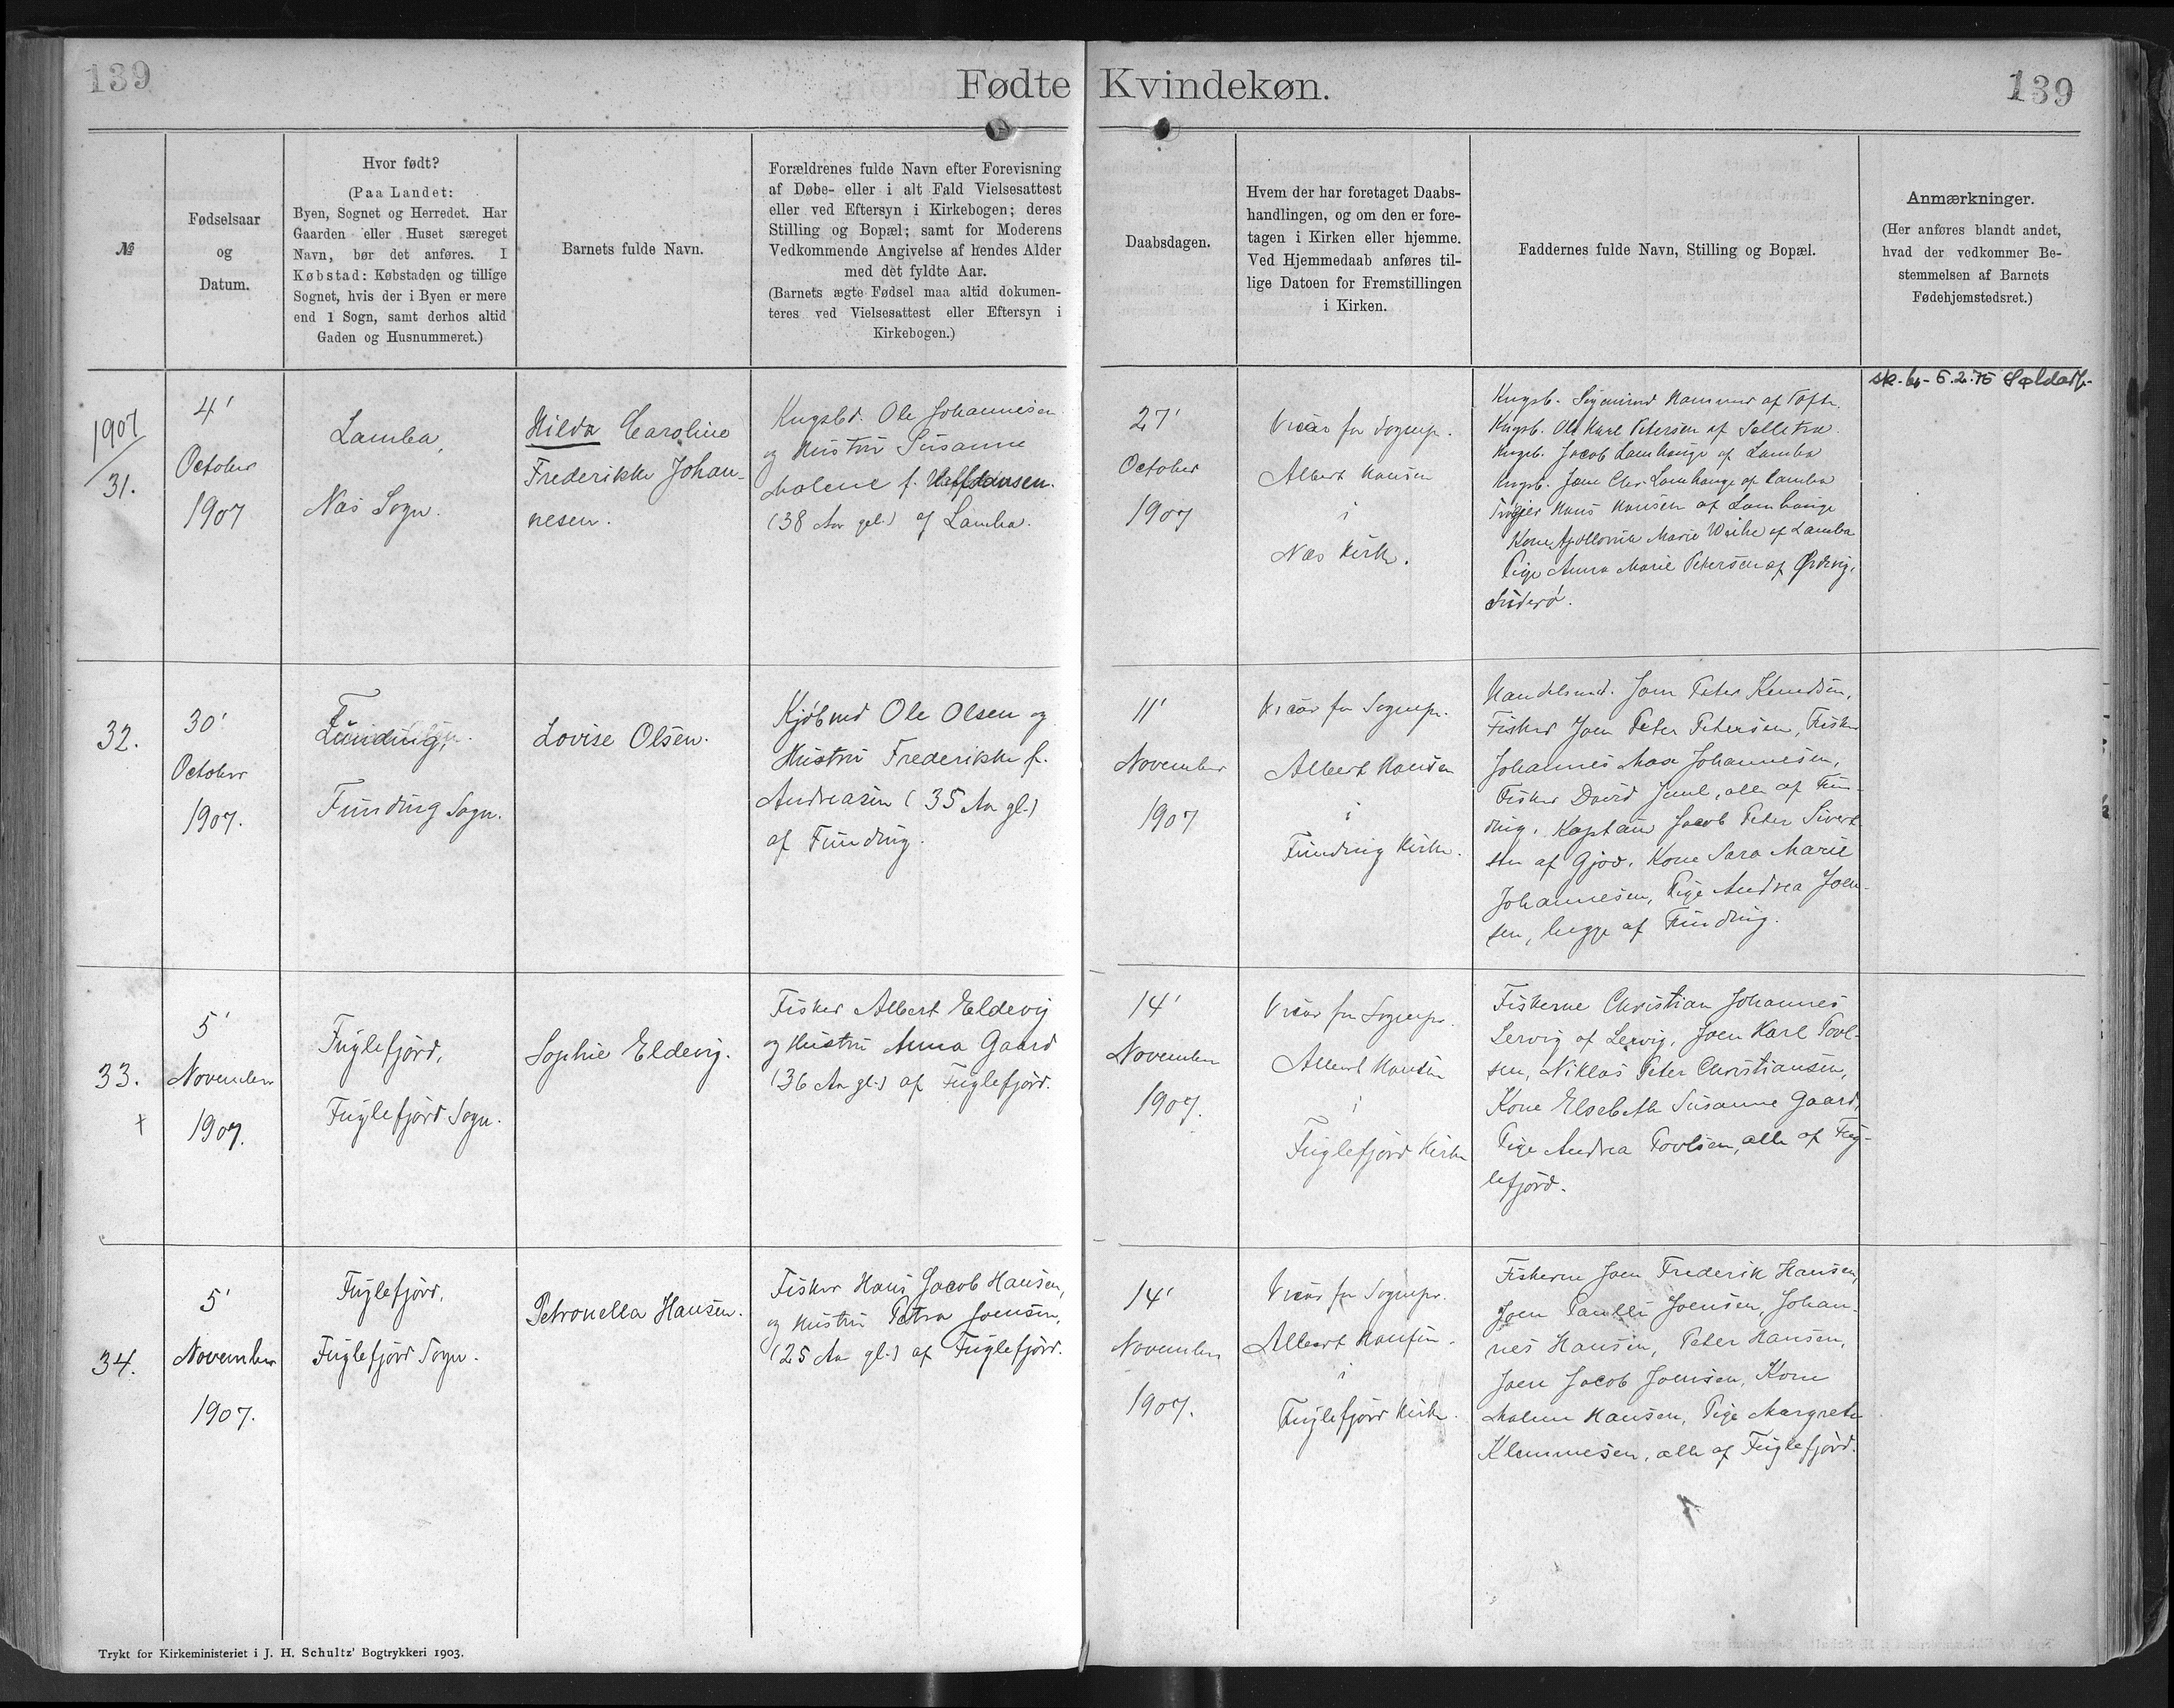 139
Fødte Kvindekøn.
139
№
Fødselsaar
og
Datum.
Hvor født?
(Paa Landet:
Byen, Sognet og Herredet. Har
Gaarden eller Huset særeget
Navn, bør det anføres. I
Købstad: Købstaden og tillige
Sognet, hvis der i Byen er mere
end 1 Sogn, samt derhos altid
Gaden og Husnummeret.)
Barnets fulde Navn.
Forældrenes fulde Navn efter Forevisning
af Døbe- eller i alt Fald Vielsesattest
eller ved Eftersyn i Kirkebogen; deres
Stilling og Bopæl; samt for Moderens
Vedkommende Angivelse af hendes Alder
med det fyldte Aar.
(Barnets ægte Fødsel maa altid dokumen-
teres ved Vielsesattest eller Eftersyn i
Kirkebogen.)
Daabsdagen.
Hvem der har foretaget Daabs-
handlingen, og om den er fore-
tagen i Kirken eller hjemme.
Ved Hjemmedaab anføres til-
lige Datoen for Fremstillingen
i Kirken.
Faddernes fulde Navn, Stilling og Bopæl.
Anmærkninger.
(Her anføres blandt andet,
hvad der vedkommer Be-
stemmelsen af Barnets
Fødehjemstedsret.)
1907
31.
4'
October
1907
Lamba,
Nas Sogn.
Hilda Caroline
Frederikke Johan-
nesen.
Kngsbd. Ole Johannesen
og Hustru Susanne
Malene f. Halfdansen.
(38 Aar gl.) af Lamba.
27'
October
1907
Vicar for Sognepr.
Albert Hansen
i
Nas Kirke.
Kngsb. Sigmund Hammer af Tofte.
Kngsb. Ole Karl Petersen af Selletræ.
Kngsb. Jacob Lamhauge af Lamba
Kngsb. Jane Chr. Lamhauge af Lamba
Hans Hansen af Lamhauge
Kone Apollonia Marie Weihe af Lamba
Pige Anna Marie Petersen af Ørdevig,
Suderø.
32.
30'
October
1907.
Funding,
Funding Sogn.
Lovise Olsen.
Kjøbmd Ole Olsen og
Hustru Frederikke f.
Andreasen (35 Aar gl.)
af Funding.
11'
November
1907
Vicar for Sognepr.
Albert Hansen
i
Funding Kirke.
Handelsmd. Joen Peter Knudsen,
Fisker Joen Peter Petersen, Fisker
Johannes Max Johannesen,
Fisker David Juul, alle af Fun-
ding. Kaptain Jacob Peter Sivert-
sen af Gjov. Kone Sara Marie
Johannesen, Pige Andrea Joen-
sen, begge af Funding.
33.
+
5'
November
1907.
Fuglefjord,
Fuglefjord Sogn.
Sophie Eldevig.
Fisker Albert Eldevig
og Hustru Anna Gaard
(36 Aar gl.) af Fuglefjord.
14'
November
1907.
Vicar for Sognepr.
Albert Hansen
i
Fuglefjord Kirke
Fiskerne Christian Johannes
Lervig af Lervig, Joen Karl Povl-
sen, Niklas Peter Christiansen,
Kone Elsebeth Susanne Gaard,
Pige Andrea Povlsen, alle af Fug-
lefjord.
34.
5'
November
1907.
Fuglefjord,
Fuglefjord Sogn.
Petronella Hansen.
Fisker Hans Jacob Hansen,
og Hustru Petra Joensen,
(25 Aar gl.) af Fuglefjord.
14'
November
1907.
Vicar for Sognepr.
Albert Hansen.
i
Fuglefjord Kirke.
Fiskerne Joen Frederik Hansen,
Joen Paulli Joensen, Johan-
nes Hansen, Peter Hansen,
Joen Jacob Joensen, Kone
Malene Hansen, Pige Margrete
Klemmesen, alle af Fuglefjord.
Trykt for Kirkeministeriet i J. H. Schultz' Bogtrykkeri 1903.